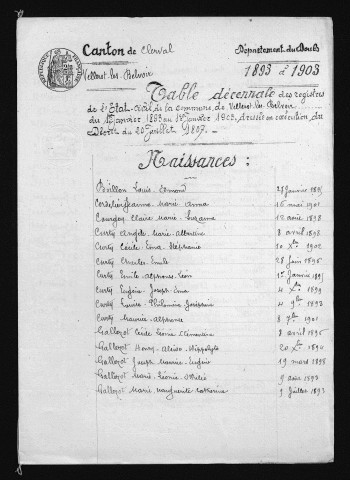 Canton de Clerval
Département du Doubs
Vellerot-les-Belvoir
1893 à 1903
Table décennale des registres
de l'Etat-civil de la commune de Vellerot-les-Belvoir
du 1er janvier 1893 au 1er janvier 1903, dressée en exécution du
Décret du 20 juillet 1807. _
Naissances :
Louis Edmond 28 janvier 189
Jeanne Marie Anna 16 mai 1901
Claire Marie Suzanne 12 août 1898
Curty Angèle Marie Albertine 8 avril 1898
Curty Cécile Irma Stéphanie 20 Xbre 1902
Curty Charles Emile 28 juin 1896
Curty Emile Alphonse Léon 1er janvier 189
Curty Eugène Joseph 4 Xbre 1899
Curty Philomène Joséphine 4 9bre 1893
Curty Maurice Alphonse 8 7bre 1901
Gallezot Cécile Léonie Clémentine 8 avril 1896
Gallezot Henry Hippolyte 20 Xbre 1894
Gallezot Joseph Maurice Eugène 19 mars 1898
Gallezot Marie Léonie 9 août 1893
Gallezot Marie Marguerite Catherine 9 juillet 1893